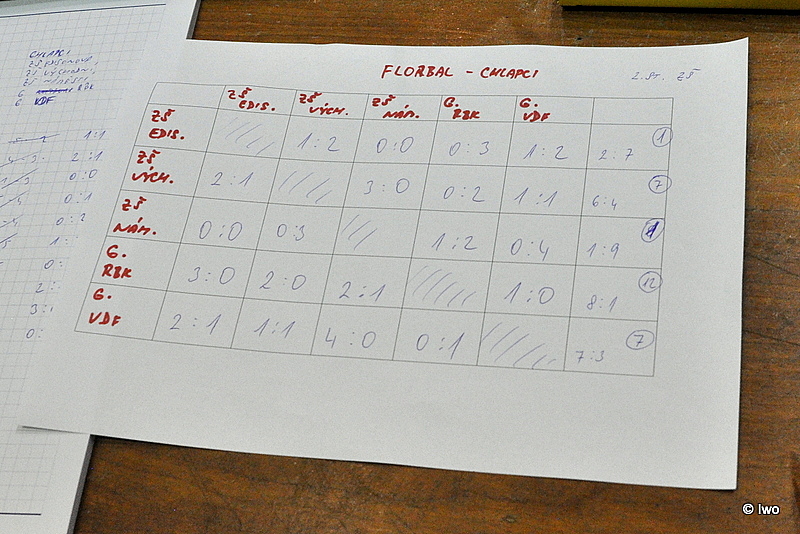 FLORBAL - CHLAPCI
2.ST. ZŠ
ZŠ EDIS. ZŠ VÝCH. ZŠ NÁM. G. RBK G. VDF
ZŠ EDIS. 1:2 0:0 0:3 1:2 2:7 1
ZŠ VÝCH. 2:1 3:0 0:2 1:1 6:4 7
ZŠ NÁM. 0:0 0:3 1:2 0:4 1:9 1
G. RBK 3:0 2:0 2:1 1:0 8:1 12
G. VDF 2:1 1:1 4:0 0:1 7:3 7
CHLAPCI
G. RBK
G. VDF
1:1
2:1
0:0
0:1
0:2
1:
0:
2:
3:
0:
© iwo